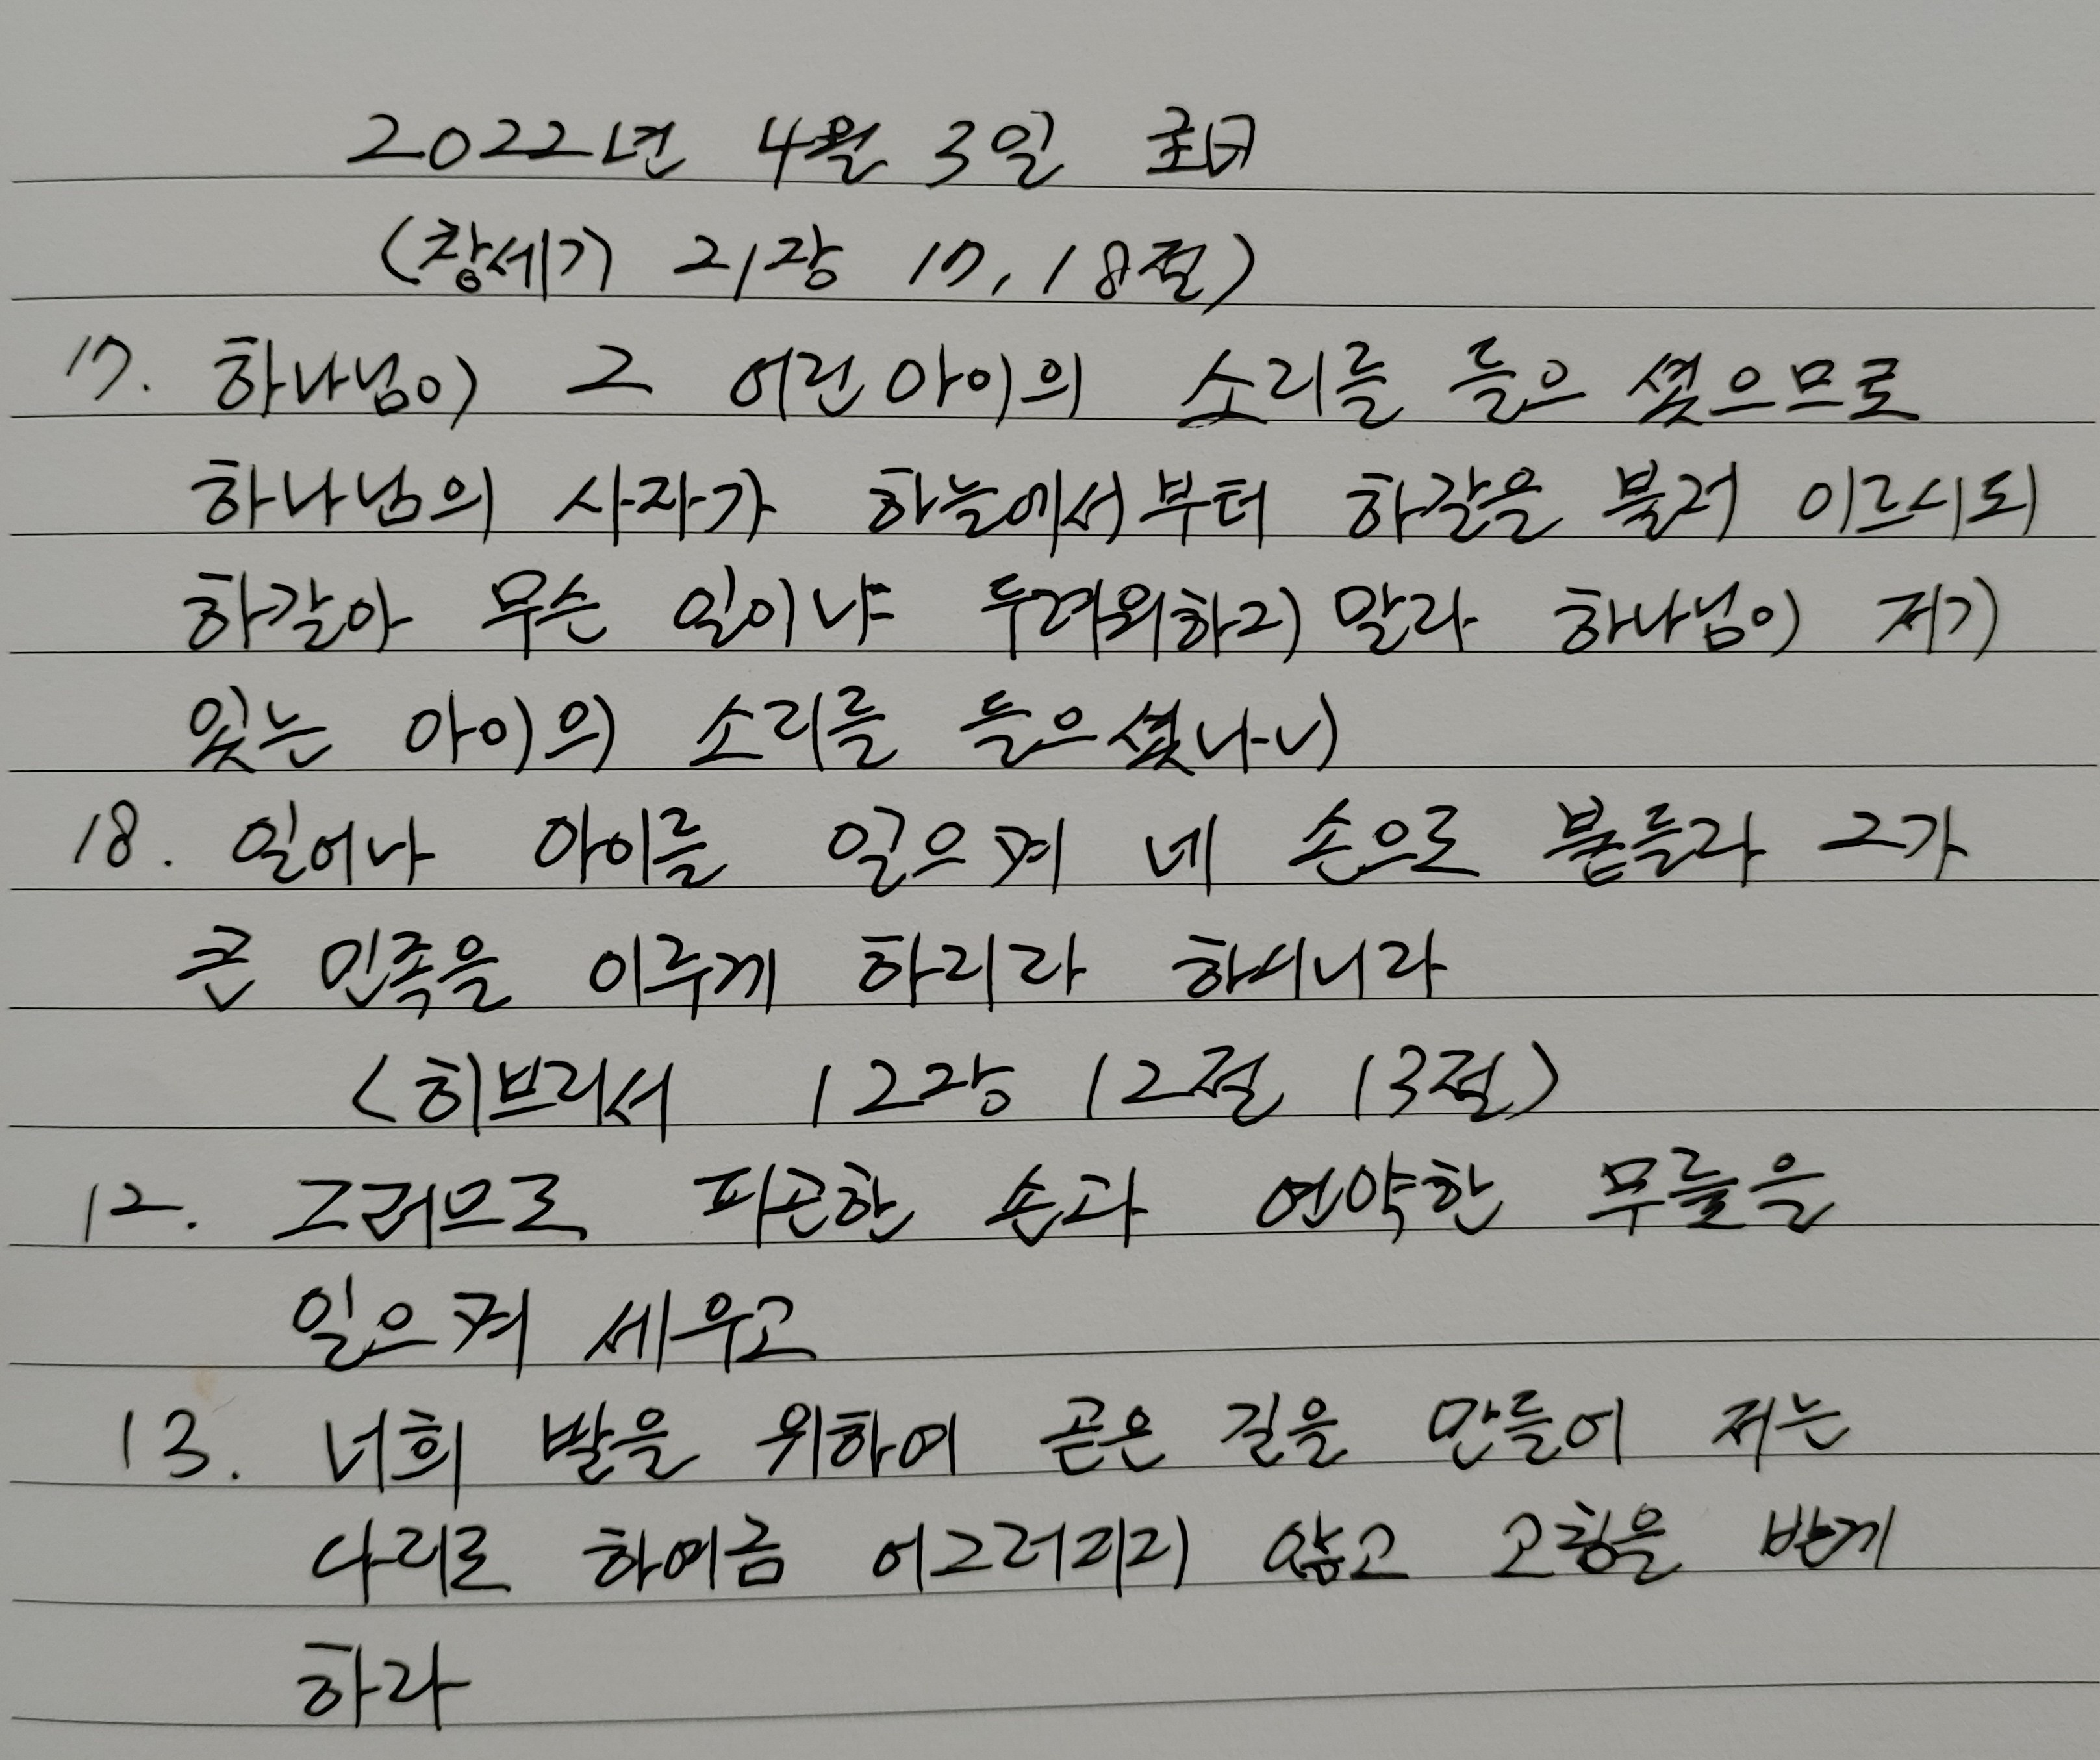 2022년 4월 3일 主日
(창세기 21장 17, 18절)
17. 하나님이 그 어린아이의 소리를 들으셨으므로
하나님의 사자가 하늘에서부터 하갈을 불러 이르시되
하갈아 무슨 일이냐 두려워하지 말라 하나님이 저기
있는 아이의 소리를 들으셨나니
18. 일어나 아이를 일으켜 네 손으로 붙들라 그가
큰 민족을 이루게 하리라 하시니라
<히브리서 12장 12절 13절>
12. 그러므로 피곤한 손과 연약한 무릎을
일으켜 세우고
13. 너희 발을 위하여 곧은 길을 만들어 저는
다리로 하여금 어그러지지 않고 고침을 받게
하라